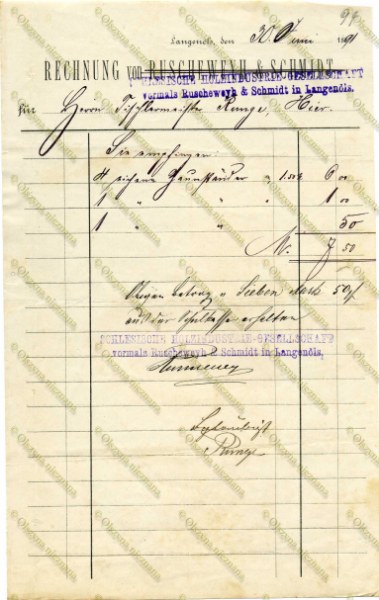 97
Langenöls, den 30. Juni 1891
RECHNUNG von RUSCHEWEYH & SCHMIDT
SCHLESISCHE HOLZINDUSTRIE-GESELLSCHAFT
vormals Ruscheweyh & Schmidt in Langenöls.
für Herrn Tischlermeister Runge, Hier.
Sie empfingen:
4 eichene Zaunständer a 1.50 6 00
1 " " " 1 00
1 " " 50
M. 7 50
Obigen Betrag v. Sieben Mark 50 pf
aus der Schulkasse erhalten
SCHLESISCHE HOLZINDUSTRIE-GESELLSCHAFT
vormals Ruscheweyh & Schmidt in Langenöls.
Runge